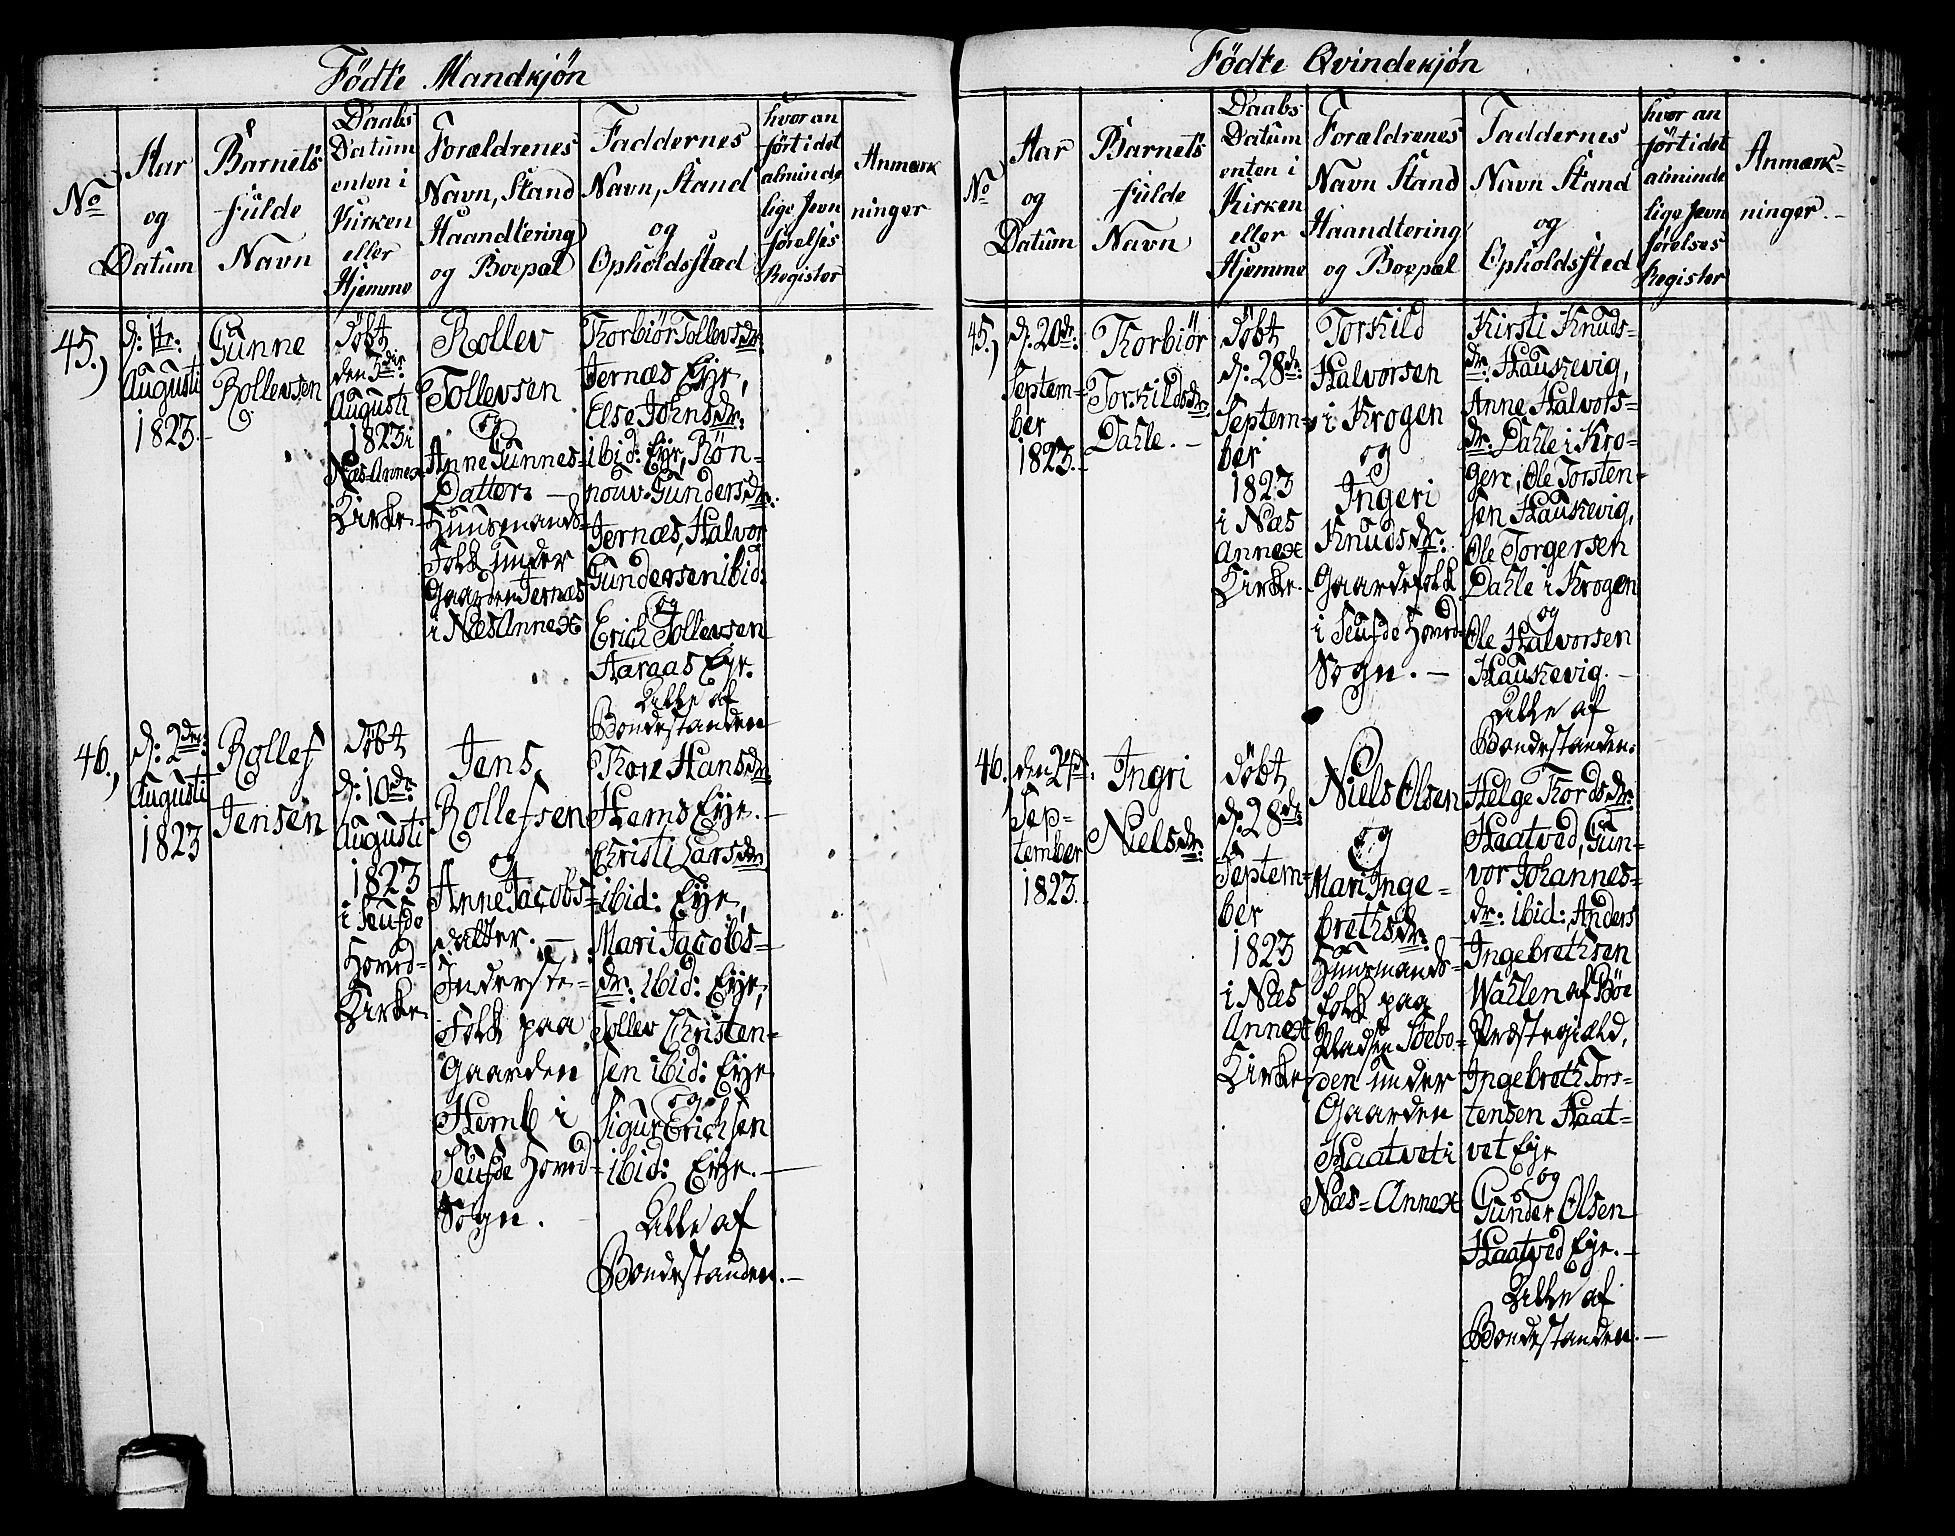 Födte Mandkjön
No
Aar
og
Datum
Barnets
fulde
Navn
Daabs
Datum
enten i
Kirken
eller
Hjemme
Forældrenes
Navn, Stand
Haandtering
og Boepæl
Faddernes
Navn, Stand
og
Opholdsstæd
hvor an
fört i det
alminde
lige Jevn
förelses
Register
Anmærk
ninger
45.)
d: 1te:
Augusti
1823.
Gunne
Rollevsen
döbt
den 3die
Augusti
1823 i
Næs-Annex
Kirke.
Rollev
Tollevsen
og
Anne Gunnes=
Datter. —
Huusmands=
Folk under
Gaarden Jernæs
i Næs Annex
Thorbiör Tollevsdr:
Jernæs Eyr,
Else Johnsdr:
ibid: Eyr, Rön=
nouv Gundersdr:
Jernæs, Halvor
Gundersen ibid:
og
Erich Tollevsen
Aaraas Eyr.
Alle af
Bondestanden
46.)
d: 2den:
Augusti
1823
Rollef
Jensen
döbt
d: 10de
Augusti
1823
i Seufde
Hoved=
Kirke.
Jens
Rollefsen
og
Anne Jacobs=
datter. —
Inderste=
Folk paa
Gaarden
Hemb i
Seufde Hoved=
Sogn.
Thore Hansdr:
Hems Eye.
Christi Larsdr:
ibid: Eye,
Mari Jacobs=
dr: ibid: Eye,
Tollev Christen=
sen ibid: Eye
og
Sigur Erichsen
ibid: Eye. —
Alle af
Bondestanden. —
Födte Qvindekjön
No
Aar
og
Datum
Barnets
fulde
Navn
Daabs
Datum
enten i
Kirken
eller
Hjemme
Forældrenes
Navn Stand
Haandtering
og Boepæl
Faddernes
Navn Stand
og
Opholdssted
hvor an
fört i det
alminde
lige Jevn
förelses
Register
Anmærk=
ninger. —
45.)
d: 20de:
Septem=
ber
1823.
Thorbiör
Torkildsdr:
Dahle. —
döbt
d: 28de:
Septem=
ber
1823
i Næs
Annex
Kirke.
Torkild
Halvorsen
i Krogen
og
Ingeri
Knudsdr:
Gaardefolk
i Seufde Hoved=
Sogn. —
Kirsti Knuds=
dr: Haukevig,
Anne Halvors=
dr: Dahle i Kro=
gen, Ole Torsten=
sen Haukevig,
Ole Torgersen
Dahle i Krogen
og
Ole Halvorsen
Haukevig. —
Alle af
Bondestanden.
46.)
den 24d.
Sep=
tember
1823.
Ingri
Nielsdr:
döbt
d: 28de
Septem=
ber
1823
i Næs
Annex
Kirke
Niels Olsen
og
Mari Inge=
brethsdr:
Huusmands=
folk paa
Pladsen Stebo=
den under
Gaarden
Haatvet i
Næs=Annex
Helge Thordsdr:
Haatved, Gun=
vor Johannes=
dr: ibid: Anders
Ingebrethsen
Wahlen af Böe
Præstegiæld,
Ingebreth Tors=
tensen Haat=
vet Eye
og
Gunder Olsen
Haatved Eye. —
Alle af
Bondestanden. —